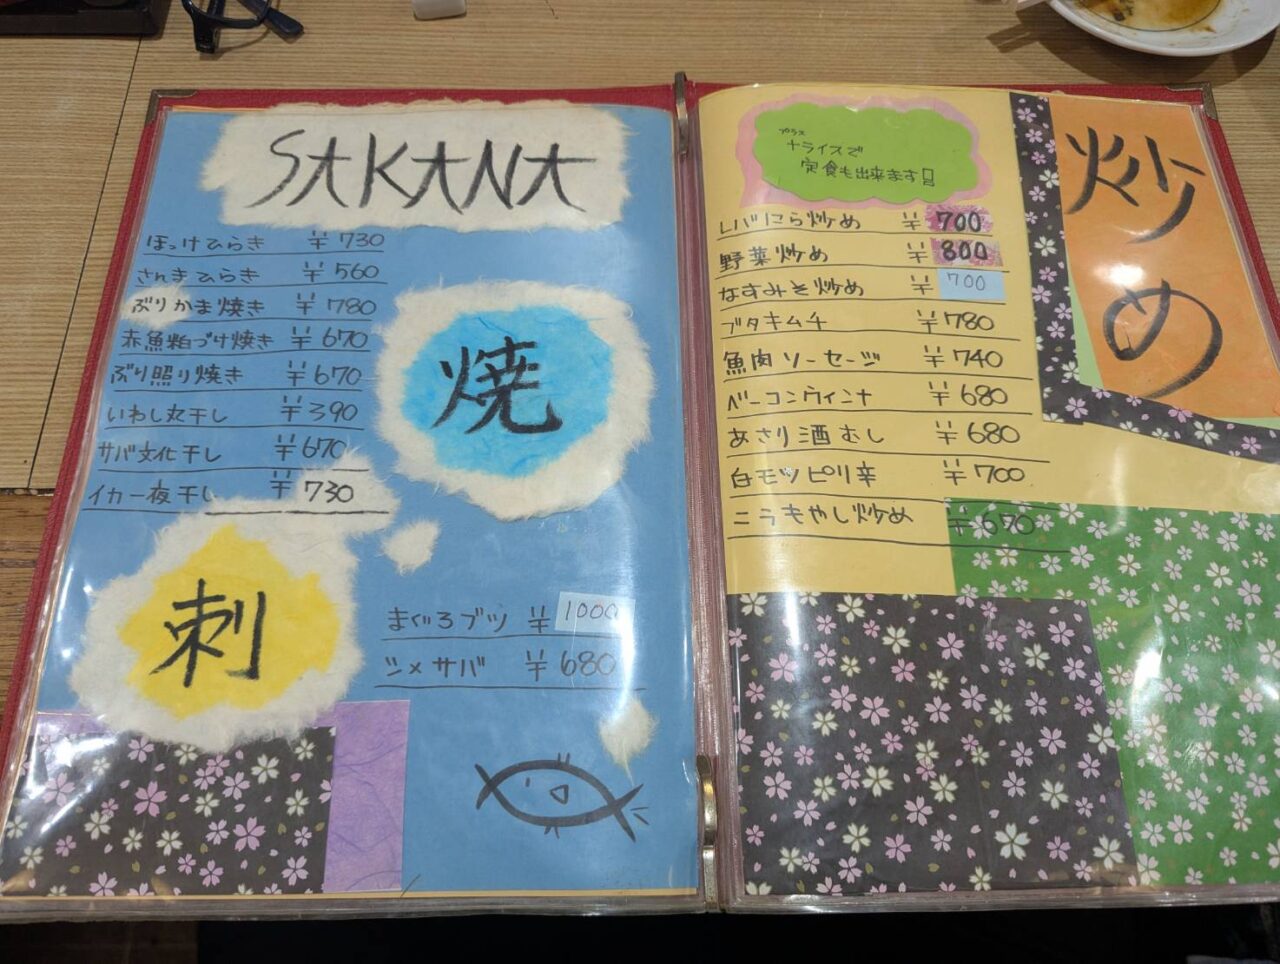 SAKANA
ほっけひらき ¥730
さんまひらき ¥560
ぶりかま焼き ¥780
赤魚粕づけ焼き ¥670
ぶり照り焼き ¥670
いわし丸干し ¥390
サバ文化干し ¥670
イカ一夜干し ¥730
焼
刺
まぐろブツ ¥1000
シメサバ ¥680
プラス
+ライスで
定食も出来ます!!
炒め
レバにら炒め ¥700
野菜炒め ¥800
なすみそ炒め ¥700
ブタキムチ ¥780
魚肉ソーセージ ¥740
ベーコンウィンナ ¥680
あさり酒むし ¥680
白モツピリ辛 ¥700
ニラもやし炒め ¥670